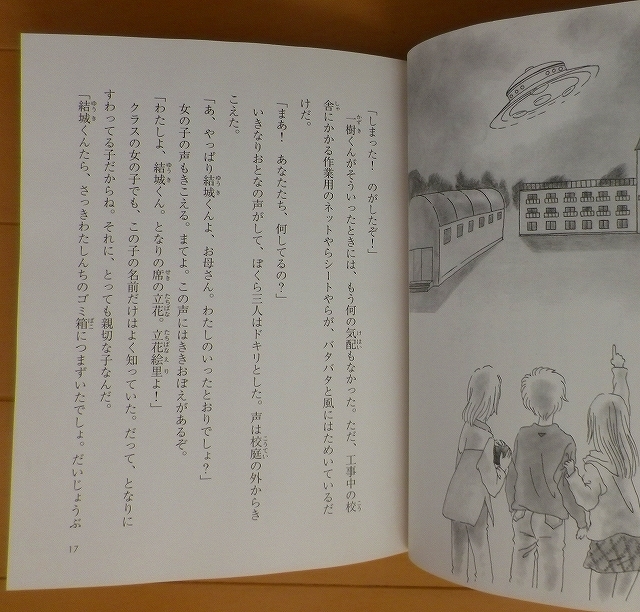 「しまった！　のがしたぞ！」
一樹くんがそういったときには、もう何の気配もなかった。ただ、工事中の校
舎にかかる作業用のネットやらシートやらが、バタバタと風にはためいているだ
けだ。
「まあ！　あなたたち、何してるの？」
いきなりおとなの声がして、ぼくら三人はドキリとした。声は校庭の外からき
こえた。
「あ、やっぱり結城くんよ、お母さん。わたしのいったとおりでしょ？」
女の子の声もきこえる。まてよ。この声にはききおぼえがあるぞ。
「わたしよ、結城くん。となりの席の立花。立花絵里よ！」
クラスの女の子でも、この子の名前だけはよく知っていた。だって、となりに
すわってる子だからね。それに、とっても親切な子なんだ。
「結城くんたら、さっきわたしんちのゴミ箱につまずいたでしょ。だいじょうぶ
17